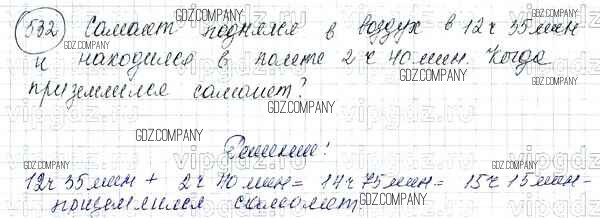 532 Самолёт поднялся в воздух в 12 ч 35 мин
и находился в полете 2 ч 40 мин. Когда
приземлился самолет?
Решение:
12 ч 35 мин + 2 ч 40 мин = 14 ч 75 мин = 15 ч 15 мин -
приземлился самолет
GDZ.COMPANY
GDZ.COMPANY
GDZ.COMPANY
GDZ.COMPANY
GDZ.COMPANY
GDZ.COMPANY
GDZ.COMPANY
GDZ.COMPANY
GDZ.COMPANY
GDZ.COMPANY